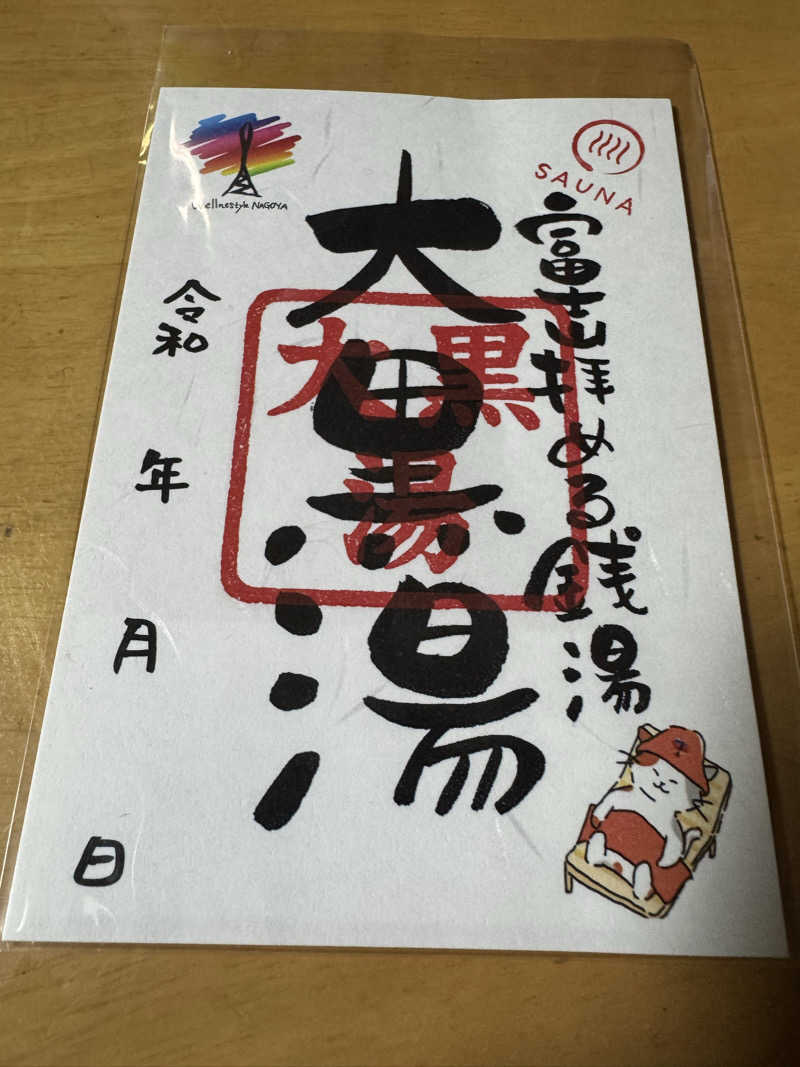 Wellnestyle NAGOYA
SAUNA
富士拝める銭湯
大黒湯
大黒湯
令和
年
月
日